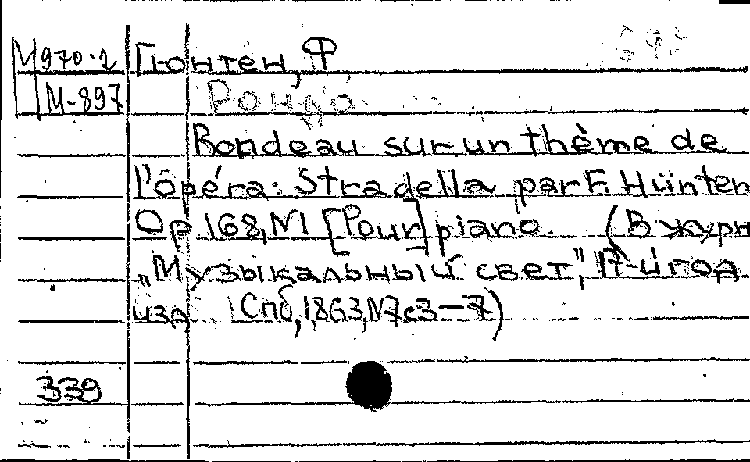 М970.2 Гюнтен, Ф
М-897 Рондо.
Rondeau sur un thème de
l'opéra: Stradella par F. Hünten
Op 168, N1 [Pour] piano. (В журн
„Музыкальный свет", 17-й год
изд Спб, 1863, N7 с3—7)
339